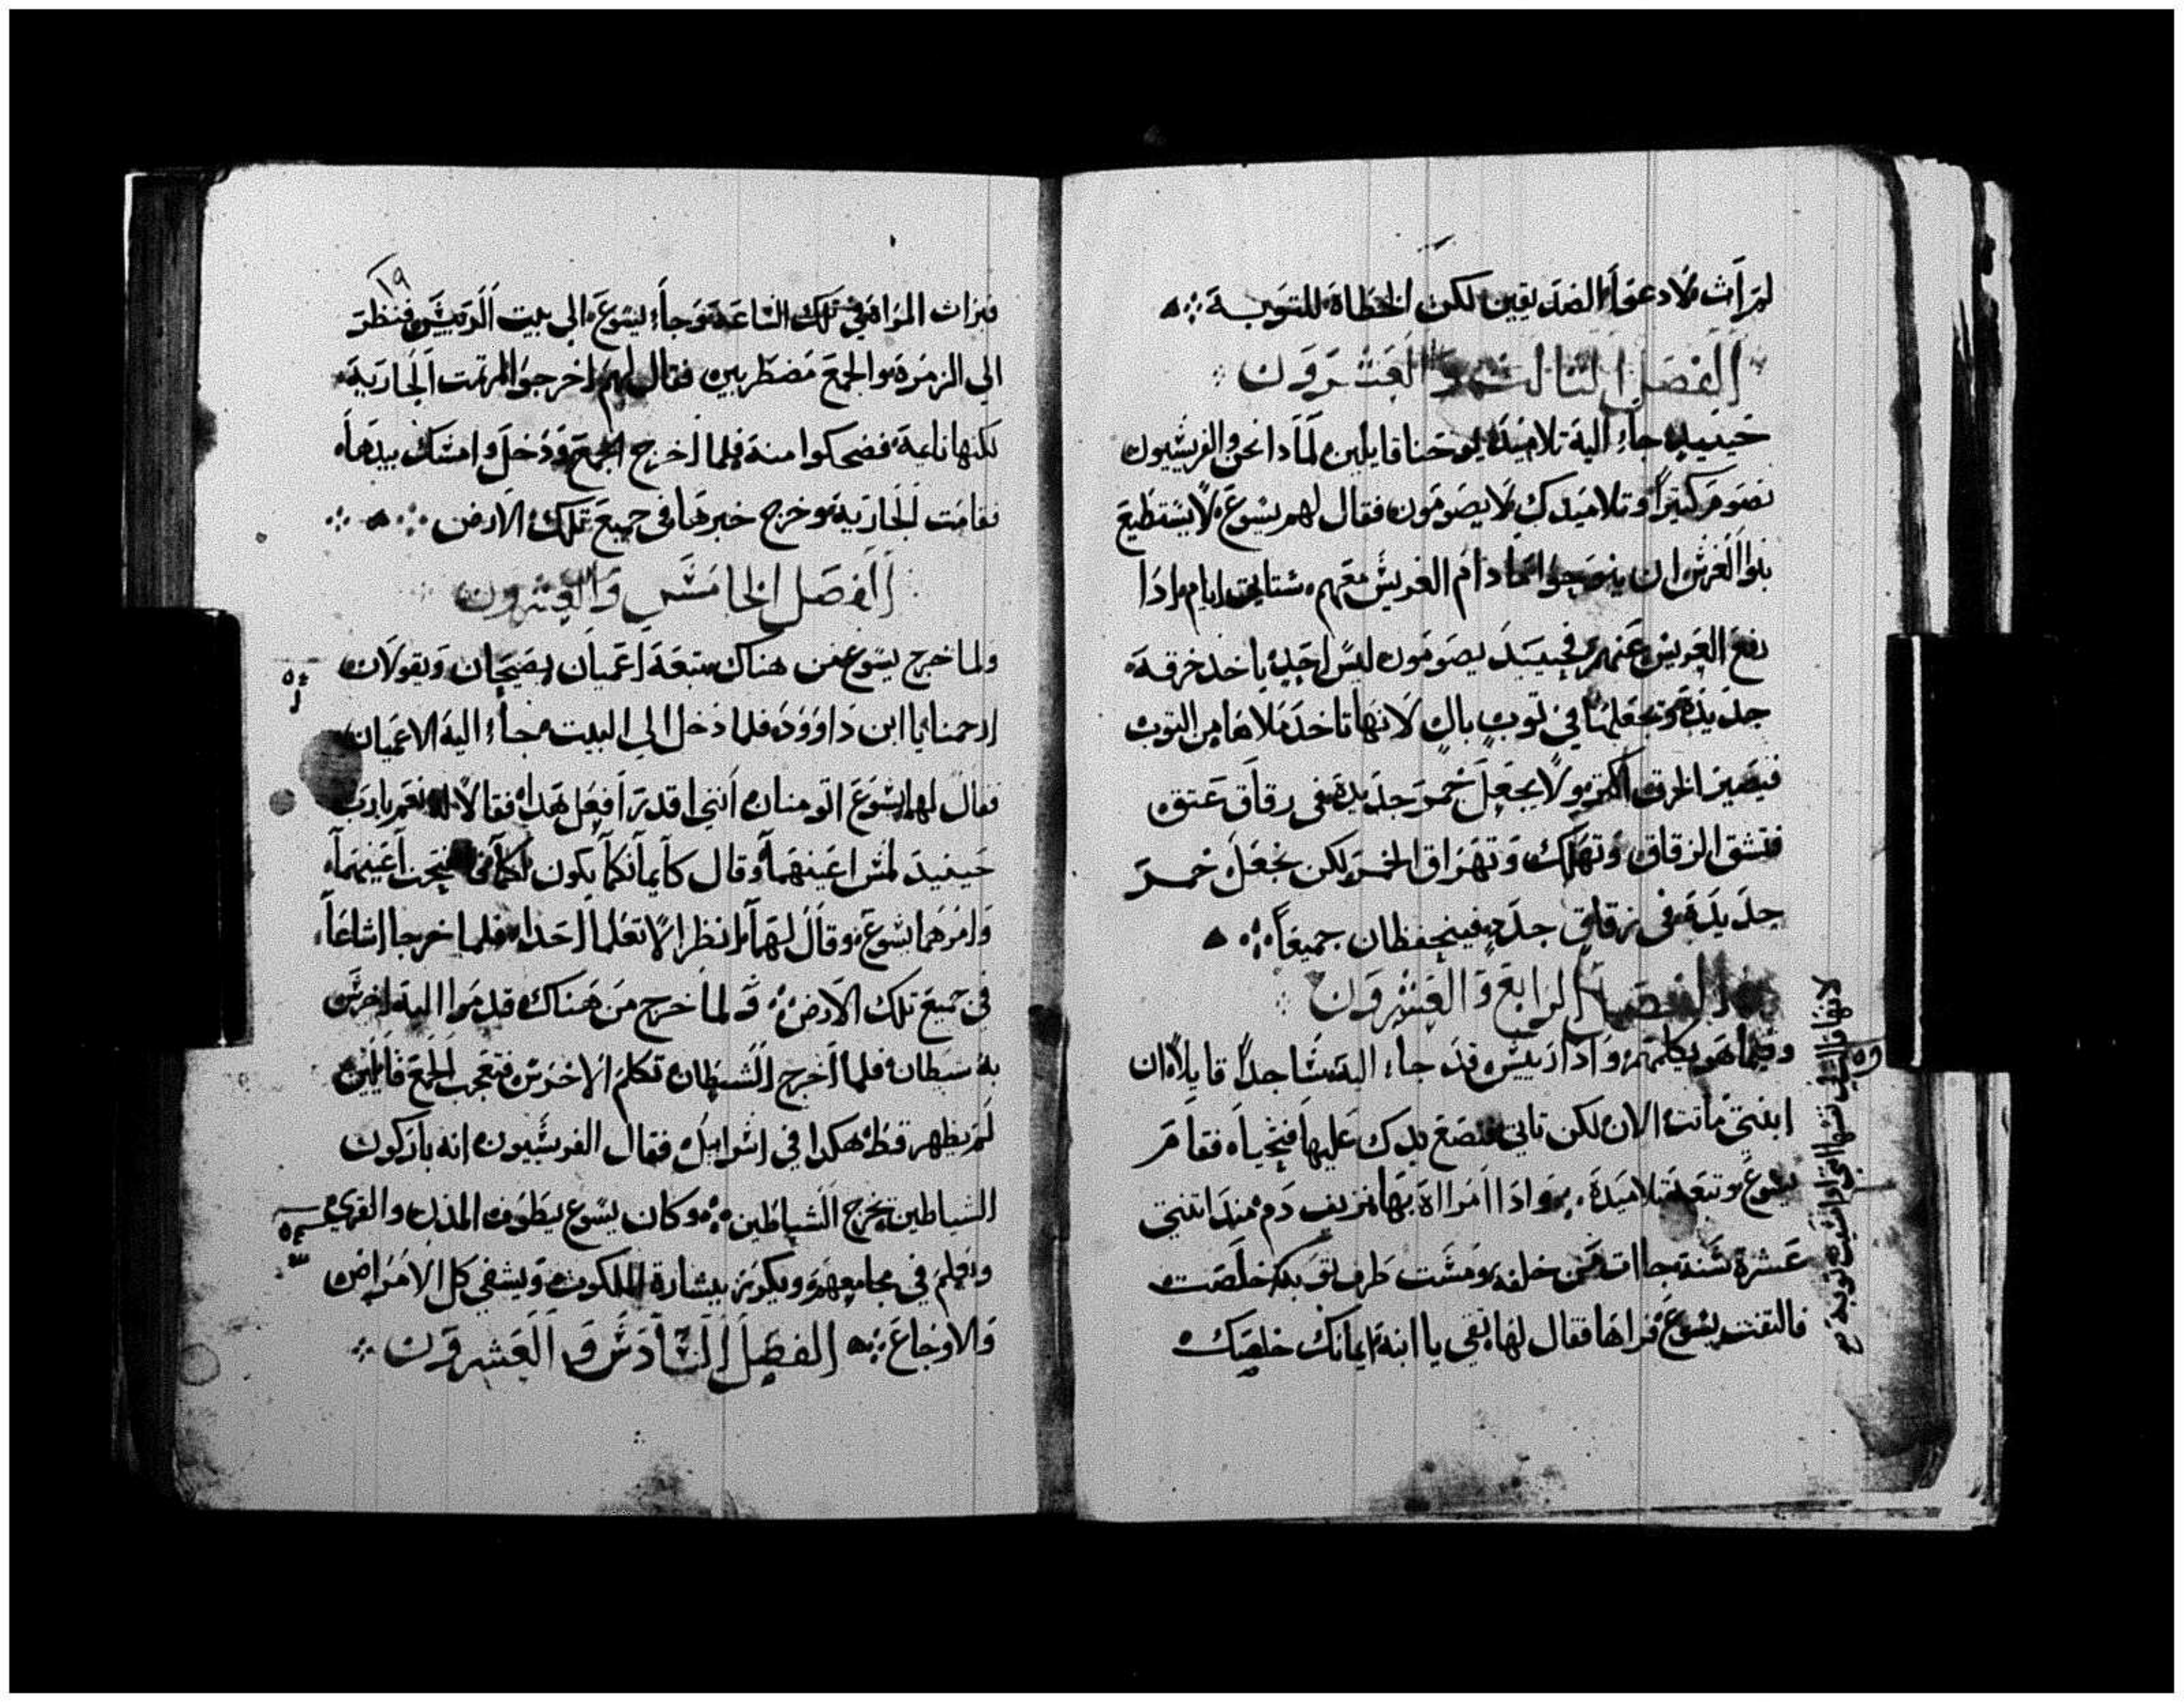 لم ات لادعوا الصديقين لكن الخطاة للتوبة
الفصل الثالث والعشرون
حينيد جاء اليه تلاميد يوحنا قايلين لمادا نحن والفريسيون
نصوم كثيراً وتلاميدك لا يصومون فقال لهم يسوع لا يستطيع
بنوا العرس ان ينوحوا ما دام العريس معهم ستاتي ايام ادا
رفع العريس عنهم فحينيد يصومون ليس احد ياخد خرقة
جديدة ويجعلها في توب بالٍ لانها تاخد ملاها من التوب
فيصير الخرق اكتر ولا يجعل خمر جديدة في زقاق عتق
فتشق الزقاق وتهلك وتهراق الخمر لكن يجعل خمر
جديدة في زقاق جدد فينحفظان جميعاً
الفصل الرابع والعشرون
وفيما هو يكلمهم وادا رييس قد جاء اليه ساجداً قايلاً ان
ابنتي ماتت الان لكن تاتي فتضع يدك عليها فتحيا فقام
يسوع وتبعه تلاميده وادا امراة بها نزيف دم مند اتنتي
عشرة سنة جاات من خلفه ومست طرف توبه خلصت
فالتفت يسوع فراها فقال لها تقي يا ابنة ايمانك خلصك
لانها قالت في نفسها اني ادا مسيت توبه
١٩
فبرات المراة في تلك الساعة وجاء يسوع الى بيت الرييس فنظر
الي الزمرة والجمع مضطربين فقال لهم اخرجوا لم تمت الجارية
لكنها نايمة فضحكوا منه فلما اخرج الجمع ودخل وامسك بيدها
فقامت الجارية وخرج خبرها في جميع تلك الارض
الفصل الخامس والعشرون
ولما خرج يسوع من هناك تبعه اعميان يصيحان ويقولان
ارحمنا يا ابن داوود فلما دخل الي البيت جاء اليه الاعميان
فقال لهما يسوع اتومنان انني اقدر افعل هدا فقالا له نعم يا رب
حينيد لمس اعينهما وقال كايمانكما يكون لكما فانفتحت اعينهما
وامرهما يسوع وقال لهما انظرا لا تعلما احدا فلما خرجا اشاعا
في جميع تلك الارض ولما خرج من هناك قدموا اليه اخرس
به شيطان فلما اخرج الشيطان تكلم الاخرس فتعجب الجمع قايلين
لم يظهر قط هكدا في اسراييل فقال الفريسيون انه باركون
الشياطين يخرج الشياطين وكان يسوع يطوف المدن والقرى
ويعلم في مجامعهم ويكرز ببشارة الملكوت ويشفي كل الامراض
والاوجاع الفصل السادس والعشرون